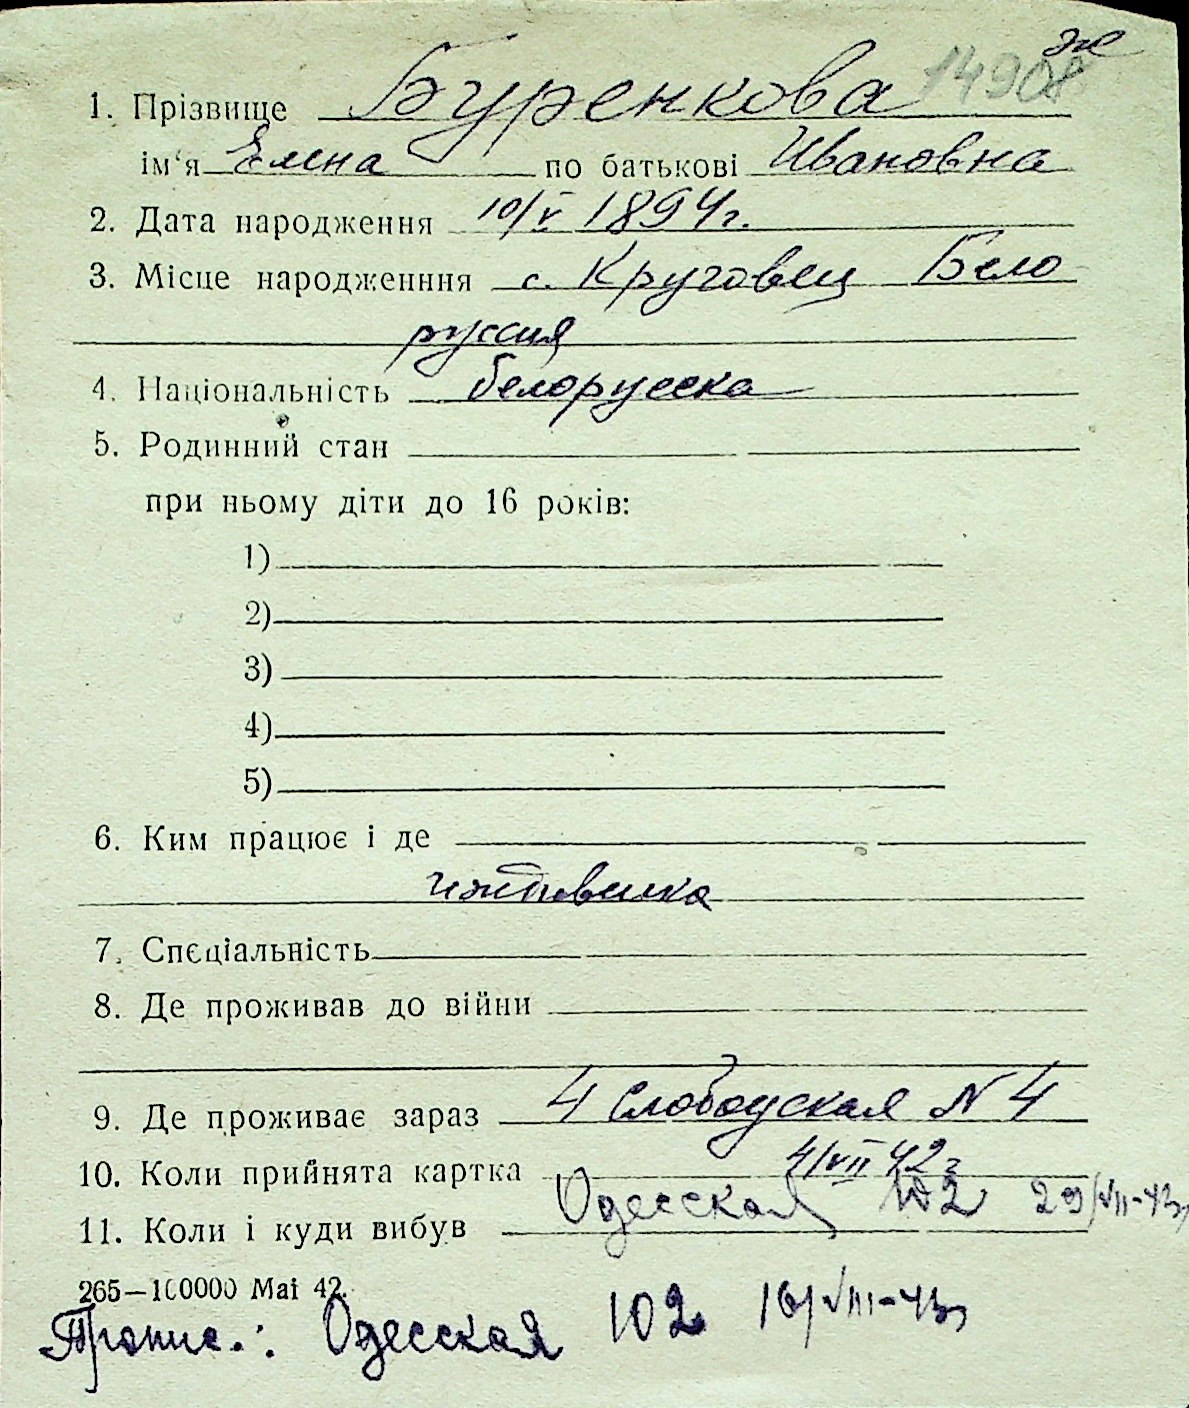 же
14908
1. Прізвище Буренкова
ім'я Елена по батькові Ивановна
2. Дата народження 10/V 1894 г.
3. Місце народженння с. Круговец Бело
руссия
4. Національність белорусска
5. Родинний стан
при ньому діти до 16 років:
1)
2)
3)
4)
5)
6. Ким працює і де
иждивенка
7. Спєціальність
8. Де проживав до війни
9. Де проживає зараз 4 Слободская N 4
10. Коли прийнята картка 4/VII 42 г
Одесская 102 29/VII-43г
11. Коли і куди вибув
265—100000 Mai 42.
Пропис.: Одесская 102 16/VIII-43г